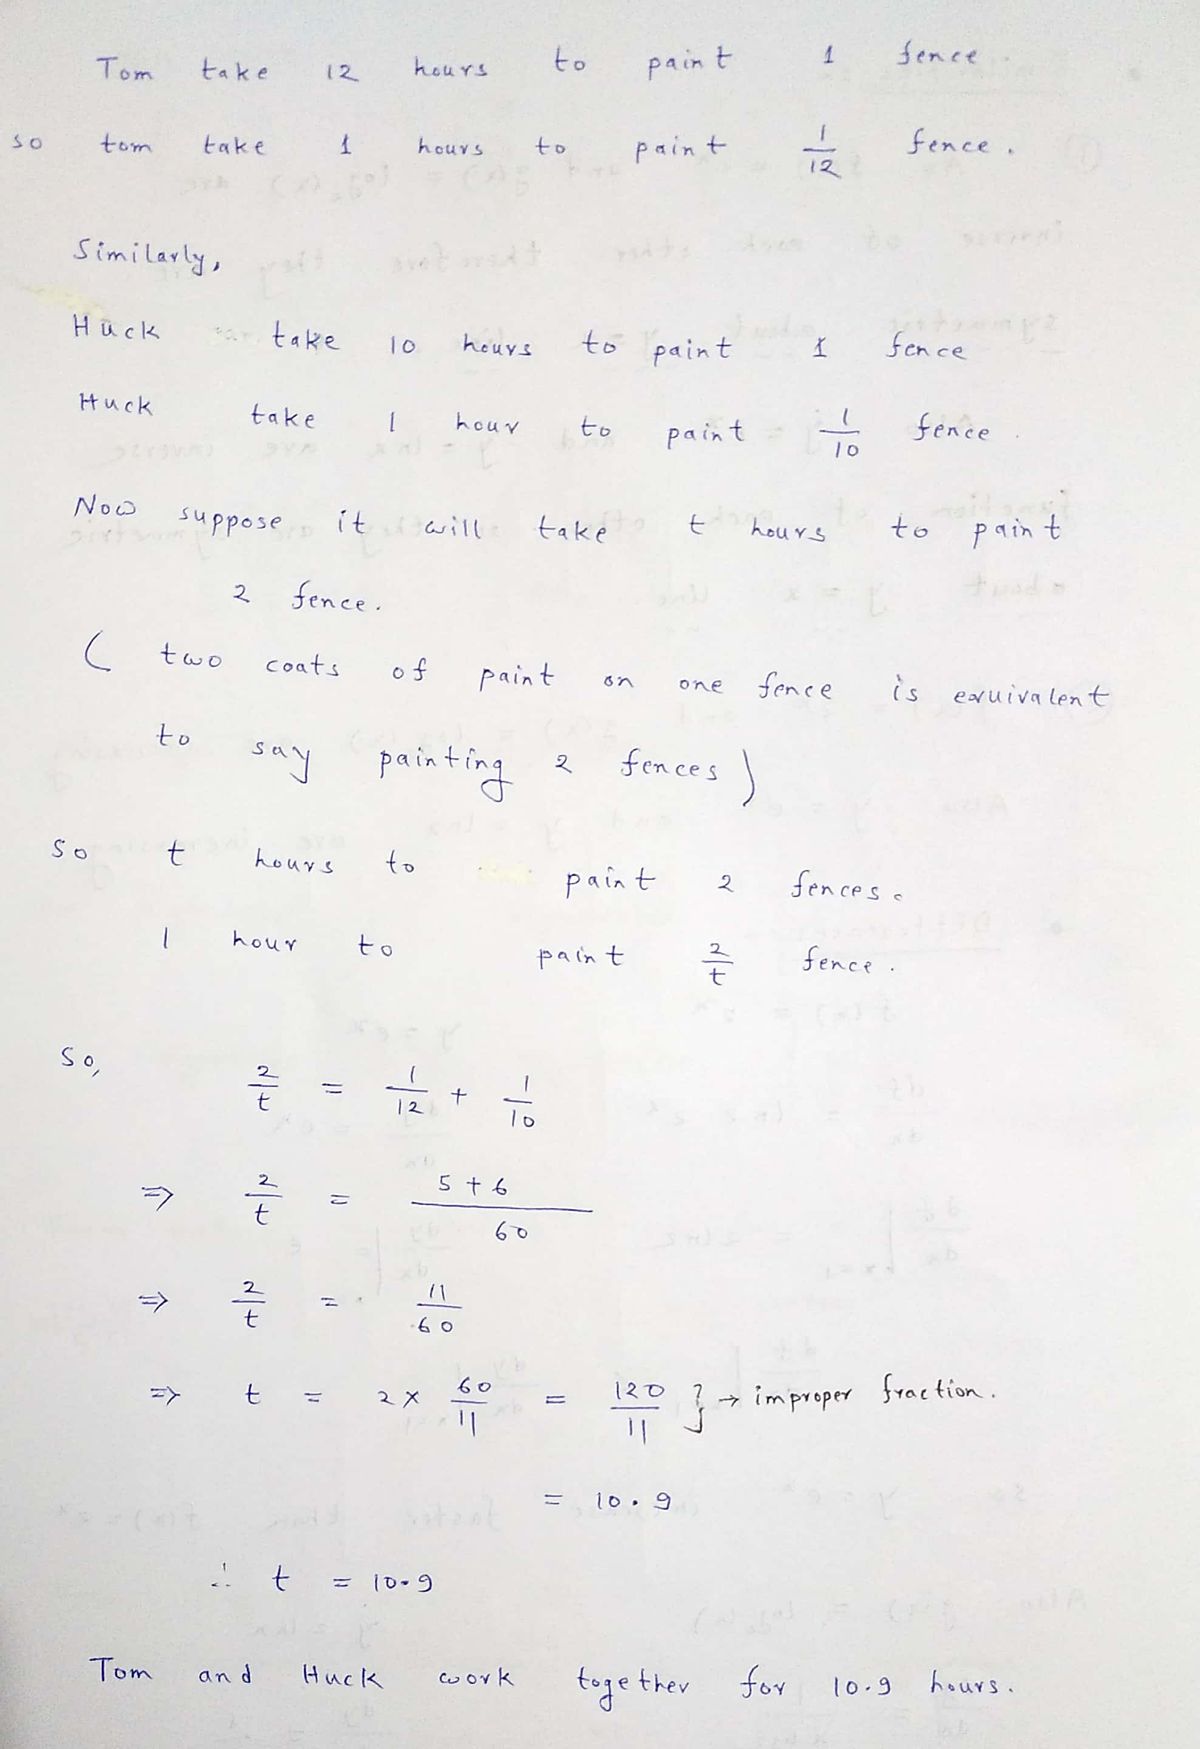 Tom take 12 hours to paint 1 fence.
so tom take 1 hours to paint 1/12 fence.
Similarly,
Huck take 10 hours to paint 1 fence
Huck take 1 hour to paint 1/10 fence.
Now suppose it will take t hours to paint
2 fence.
( two coats of paint on one fence is equivalent
to say painting 2 fences )
So t hours to paint 2 fences.
1 hour to paint 2/t fence.
So,
2/t = 1/12 + 1/10
⇒ 2/t = (5 + 6)/60
⇒ 2/t = 11/60
⇒ t = 2 × 60/11 = 120/11 } → improper fraction.
= 10.9
∴ t = 10.9
Tom and Huck work together for 10.9 hours.